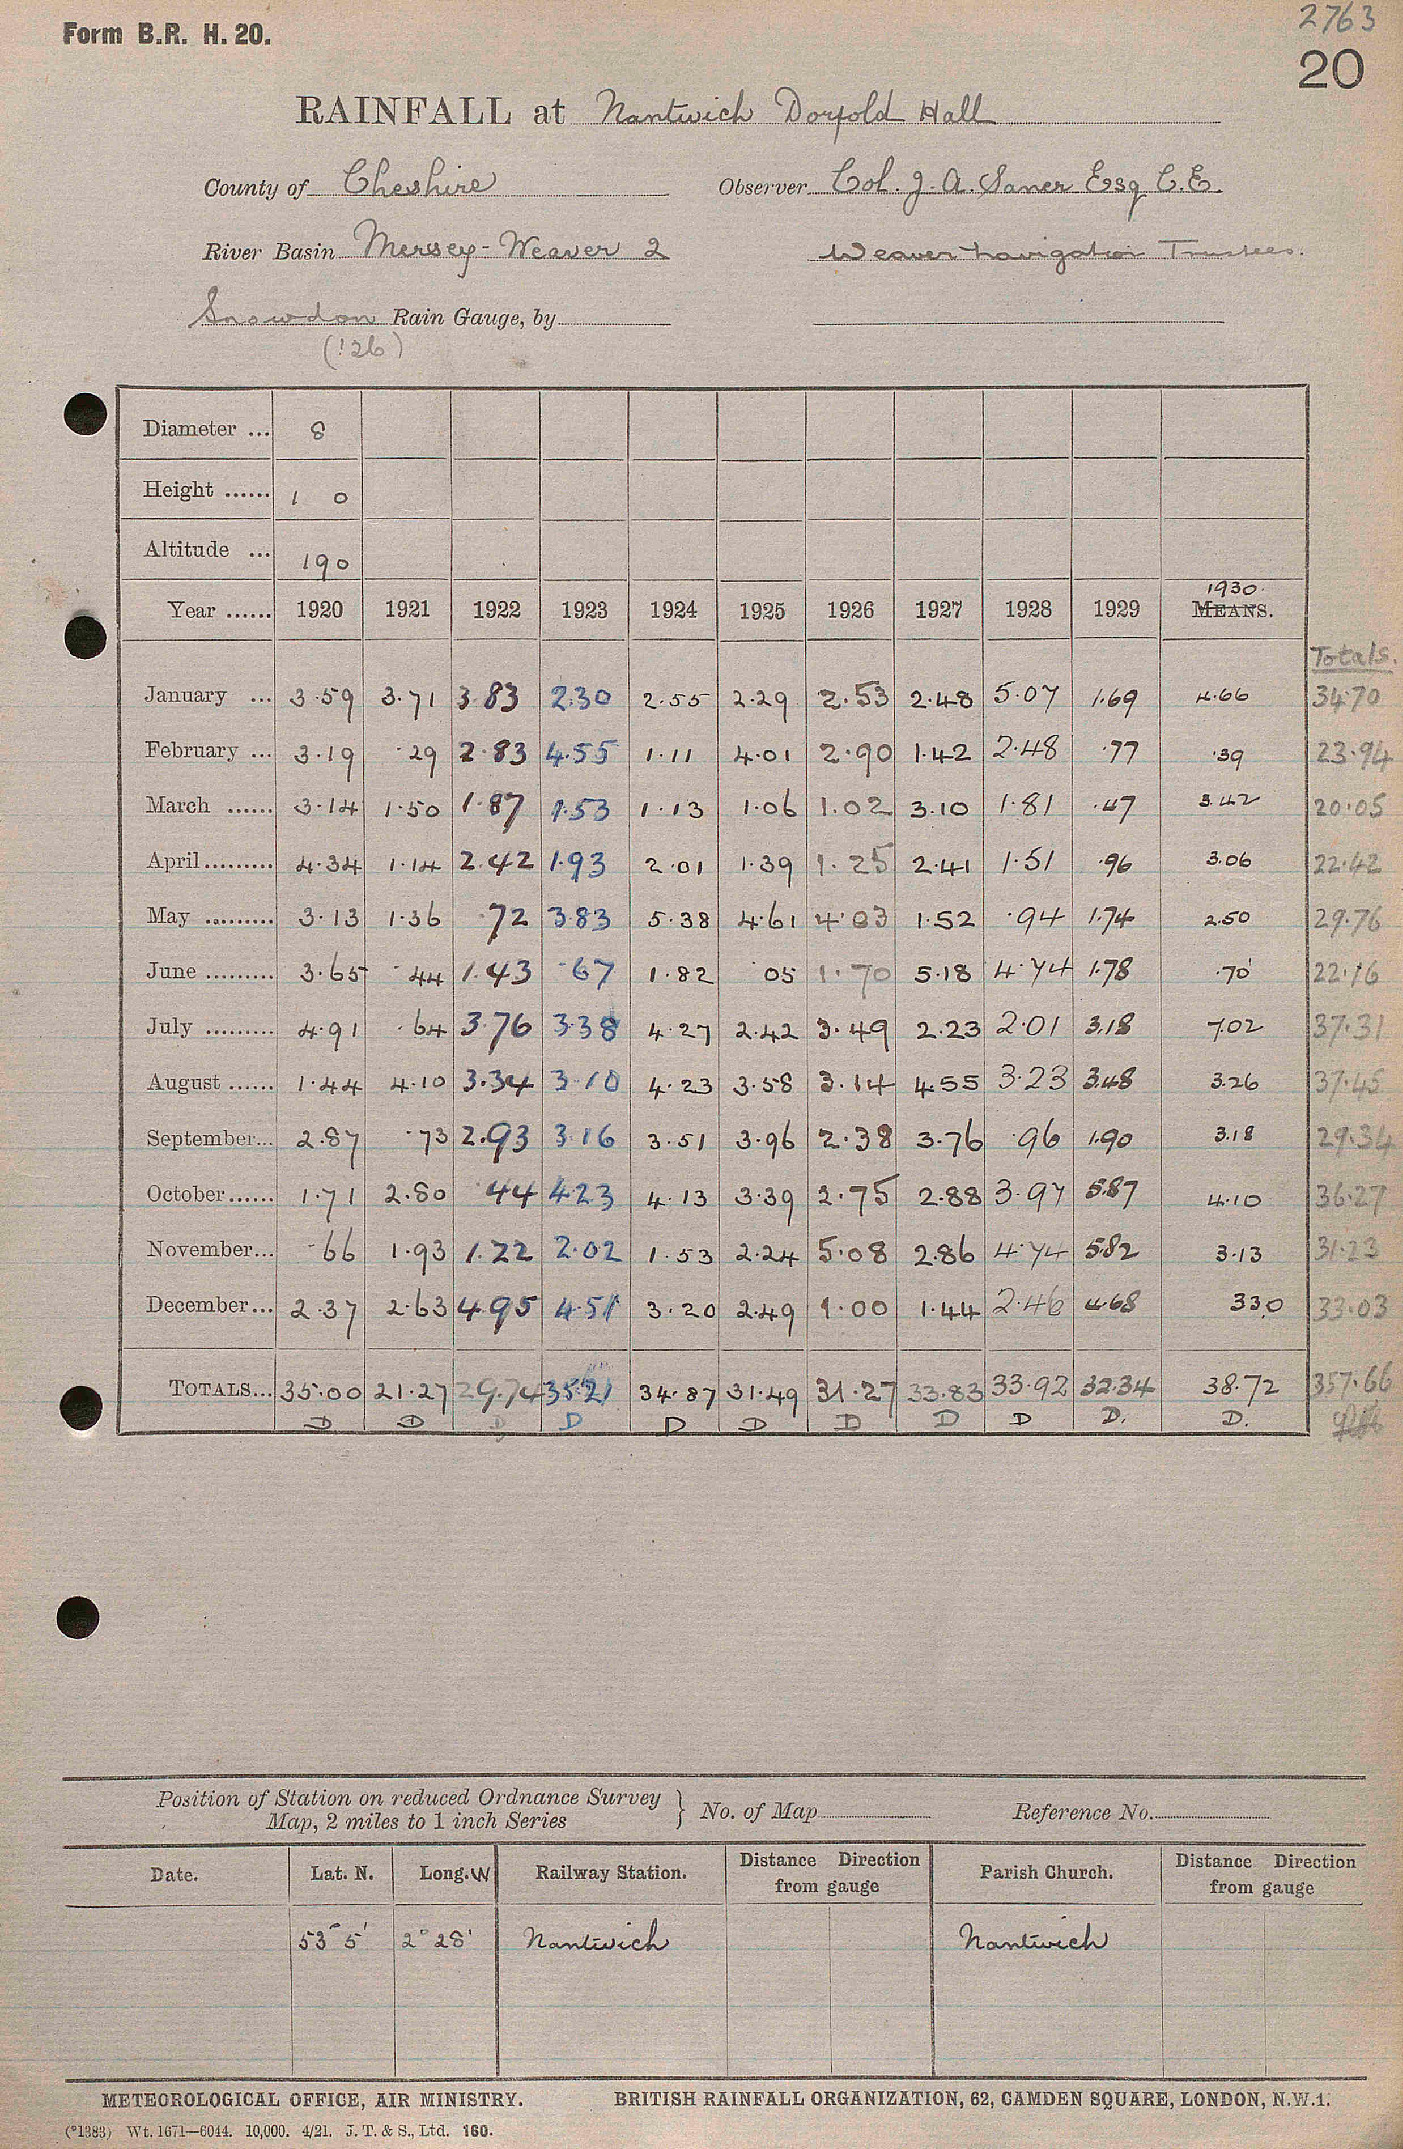 2763
Form B.R. H. 20.
20
RAINFALL at Nantwich Dorfold Hall
County of Cheshire Observer Col. J. A. Saner Esq C.E.
River Basin Mersey-Weaver 2 Weaver Navigation Trustees.
Snowdon Rain Gauge, by
('26)
Diameter ... 8
Height ...... 1 0
Altitude ... 190
1930.
Year ...... 1920 1921 1922 1923 1924 1925 1926 1927 1928 1929 MEANS.
Totals.
January ... 3.59 3.71 3.83 2.30 2.55 2.29 2.53 2.48 5.07 1.69 4.66 34.70
February ... 3.19 .29 2.83 4.55 1.11 4.01 2.90 1.42 2.48 .77 .39 23.94
March ...... 3.14 1.50 1.87 1.53 1.13 1.06 1.02 3.10 1.81 .47 3.42 20.05
April ......... 4.34 1.14 2.42 1.93 2.01 1.39 1.25 2.41 1.51 .96 3.06 22.42
May ......... 3.13 1.36 .72 3.83 5.38 4.61 4.03 1.52 .94 1.74 2.50 29.76
June ......... 3.65 .44 1.43 .67 1.82 .05 1.70 5.18 4.74 1.78 .70 22.16
July ......... 4.91 .64 3.76 3.38 4.27 2.42 3.49 2.23 2.01 3.18 7.02 37.31
August ...... 1.44 4.10 3.34 3.10 4.23 3.58 3.14 4.55 3.23 3.48 3.26 37.45
September... 2.87 .73 2.93 3.16 3.51 3.96 2.38 3.76 .96 1.90 3.18 29.34
October...... 1.71 2.80 .44 4.23 4.13 3.39 2.75 2.88 3.97 5.87 4.10 36.27
November... .66 1.93 1.22 2.02 1.53 2.24 5.08 2.86 4.74 5.82 3.13 31.23
December... 2.37 2.63 4.95 4.51 3.20 2.49 1.00 1.44 2.46 4.68 3.30 33.03
TOTALS... 35.00 21.27 29.74 35.21 34.87 31.49 31.27 33.83 33.92 32.34 38.72 357.66
D D D D D D D D D D. D.
Position of Station on reduced Ordnance Survey
Map, 2 miles to 1 inch Series } No. of Map Reference No.
Date. Lat. N. Long. W Railway Station. Distance Direction from gauge Parish Church. Distance Direction from gauge
53° 5' 2° 28' Nantwich Nantwich
METEOROLOGICAL OFFICE, AIR MINISTRY. BRITISH RAINFALL ORGANIZATION, 62, CAMDEN SQUARE, LONDON, N.W.1.
(*1383) Wt. 1671—6044. 10,000. 4/21. J. T. & S., Ltd. 160.